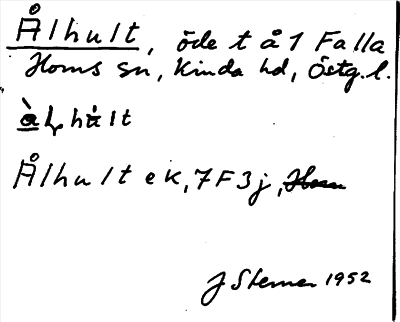 Ålhult, öde t å 1 Falla
Horns sn, Kinda hd, Östg. l.
Ålhult ek, 7F3j, Horn
J Sterner 1952